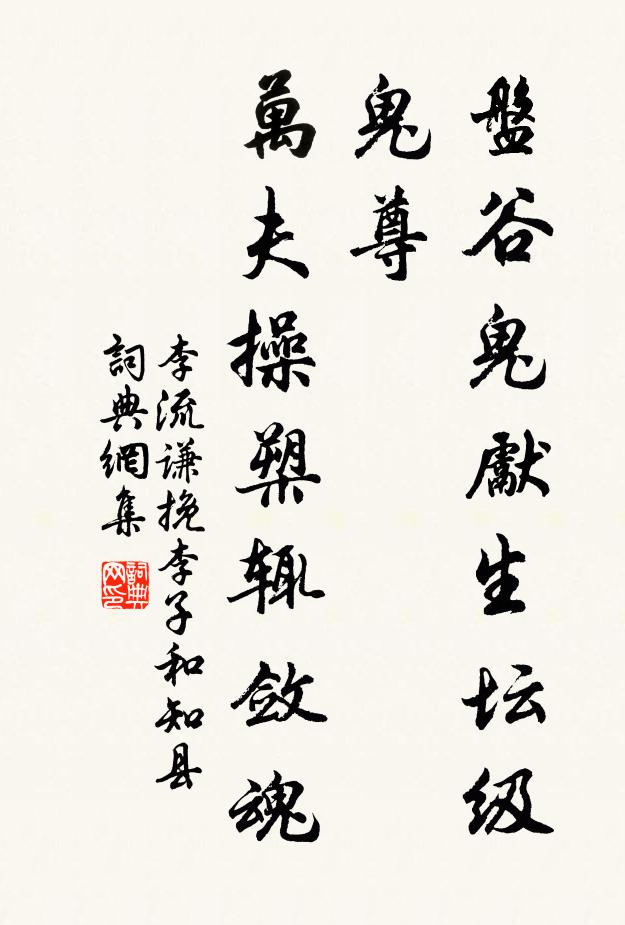 盤谷鬼獻生坛级
鬼尊
萬夫操槊辄敛魂
李流谦挽李子和知县
詞典網集
詞典网印